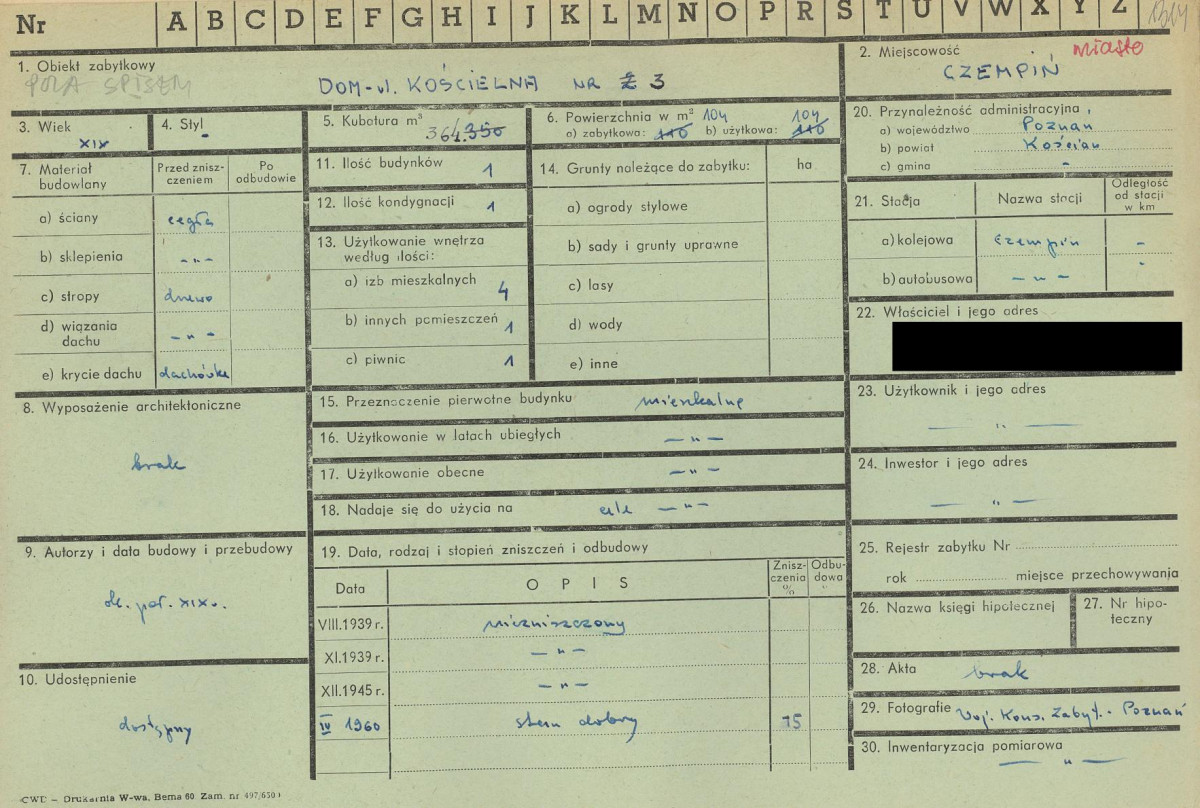 Nr A B C D E F G H I J K L M N O P R S T U V W X Y Z
1. Obiekt zabytkowy
POZA SPISEM
DOM-ul. KOŚCIELNA NR 3
2. Miejscowość miasto
CZEMPIŃ
3. Wiek
XIX
4. Styl
-
5. Kubatura m³
364 350
6. Powierzchnia w m² 104 104
a) zabytkowa: 110 b) użytkowa: 110
20. Przynależność administracyjna
a) województwo Poznań
b) powiat Kościan
c) gmina -
7. Materiał budowlany
Przed zniszczeniem
Po odbudowie
a) ściany cegła
b) sklepienia -"-
c) stropy drewo
d) wiązania dachu -"-
e) krycie dachu dachówka
11. Ilość budynków 1
12. Ilość kondygnacji 1
13. Użytkowanie wnętrza
według ilości:
a) izb mieszkalnych 4
b) innych pomieszczeń 1
c) piwnic 1
14. Grunty należące do zabytku: ha
a) ogrody stylowe
b) sady i grunty uprawne
c) lasy
d) wody
e) inne
21. Stacja
Nazwa stacji
Odległość od stacji w km
a) kolejowa Czempiń -
b) autobusowa -"- -
22. Właściciel i jego adres
8. Wyposażenie architektoniczne
brak
15. Przeznaczenie pierwotne budynku mieszkalne
16. Użytkowanie w latach ubiegłych -"-
17. Użytkowanie obecne -"-
18. Nadaje się do użycia na cele -"-
23. Użytkownik i jego adres
-"-
24. Inwestor i jego adres
-"-
9. Autorzy i data budowy i przebudowy
ok. poł. XIX w.
19. Data, rodzaj i stopień zniszczeń i odbudowy
Data
OPIS
Zniszczenia %
Odbudowa
VIII.1939 r. niezniszczony
XI.1939 r. -"-
XII.1945 r. -"-
IV 1960 stan dobry 15
25. Rejestr zabytku Nr
rok miejsce przechowywania
26. Nazwa księgi hipotecznej
27. Nr hipoteczny
10. Udostępnienie
dostępny
28. Akta brak
29. Fotografie Woj. Kons. Zabyt. - Poznań
30. Inwentaryzacja pomiarowa
-"-
CWD – Drukarnia W-wa, Bema 60 Zam. nr 497/650